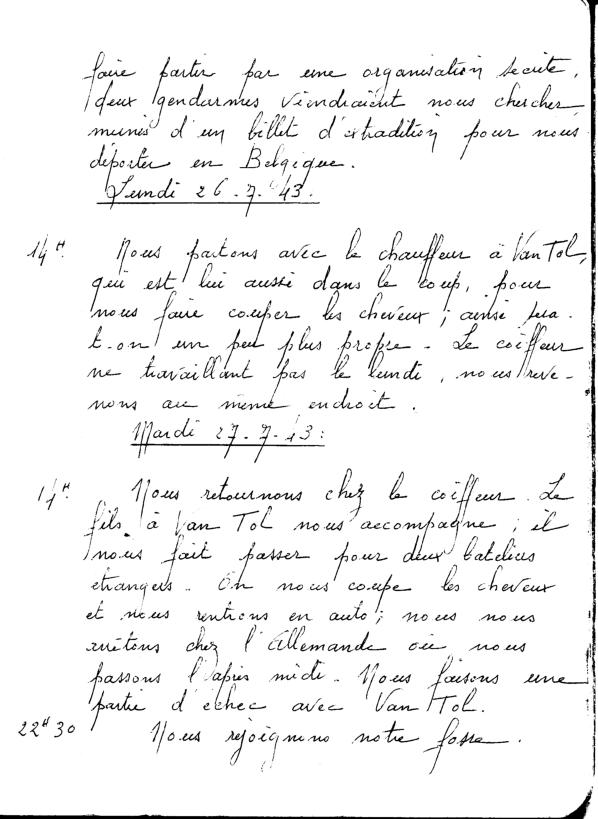 faire partir par une organisation secrète,
deux gendarmes viendraient nous chercher
munis d'un billet d'extradition pour nous
déporter en Belgique.
Lundi 26.7.43.
14H. Nous partons avec le chauffeur à Van Tol,
qui est lui aussi dans le coup, pour
nous faire couper les cheveux ; ainsi sera-
t-on un peu plus propre - Le coiffeur
ne travaillant pas le lundi, nous reve-
nons au même endroit.
Mardi 27.7.43:
14H. Nous retournons chez le coiffeur. Le
fils à Van Tol nous accompagne ; il
nous fait passer pour deux bateliers
étrangers. On nous coupe les cheveux
et nous rentrons en auto ; nous nous
arrêtons chez l'Allemande où nous
passons l'après midi. Nous faisons une
partie d'échec avec Van Tol.
22H30 Nous rejoignons notre fosse.